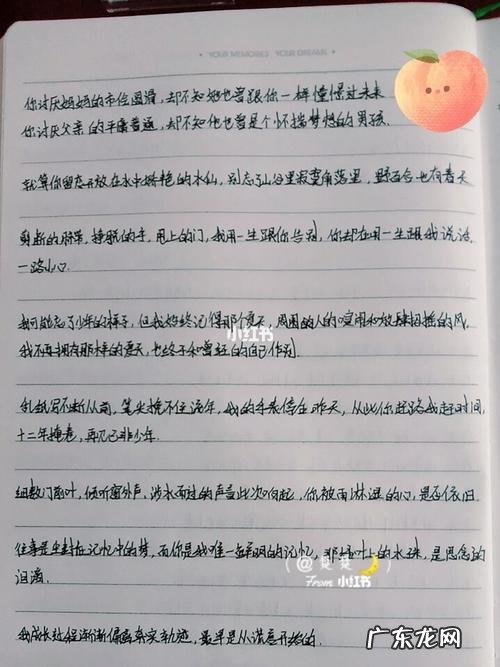 YOUR MEMORIES YOUR DREAMS
你讨厌妈妈的市侩圆滑，却不知她也曾跟你一样憧憬过未来
你讨厌父亲的平庸普通，却不知他也曾是个怀揣梦想的男孩.
就算你留恋开放在水中娇艳的水仙，别忘了山谷里寂寞角落里，野百合也有春天
剪断的脐带，挣脱的手，甩上的门，我用一生跟你告别，你却在用一生跟我说说，
一路小心.
我可能忘了少年的样子，但我始终记得那个夏天，周围的人的喧闹和放肆招摇的风，
我不再拥有那样的夏天，也终于和曾经的自己作别.
小红书
乱纸写不断从前，笔尖挽不住流年，我的手表停在昨天，从此你赶路我赶时间，
十二年掩卷，再见已非少年.
细数门前叶，倾听窗外声，涉水而过的声音此次响起，你被雨淋湿的心，是否依旧.
往事是尘封在记忆中的梦，而你是我唯一鲜明的记忆，那绿叶上的水珠，是思念的
泪滴.
From 小红书
我成长过程渐渐偏离真实轨迹，最早是从谎言开始的.
广东龙网